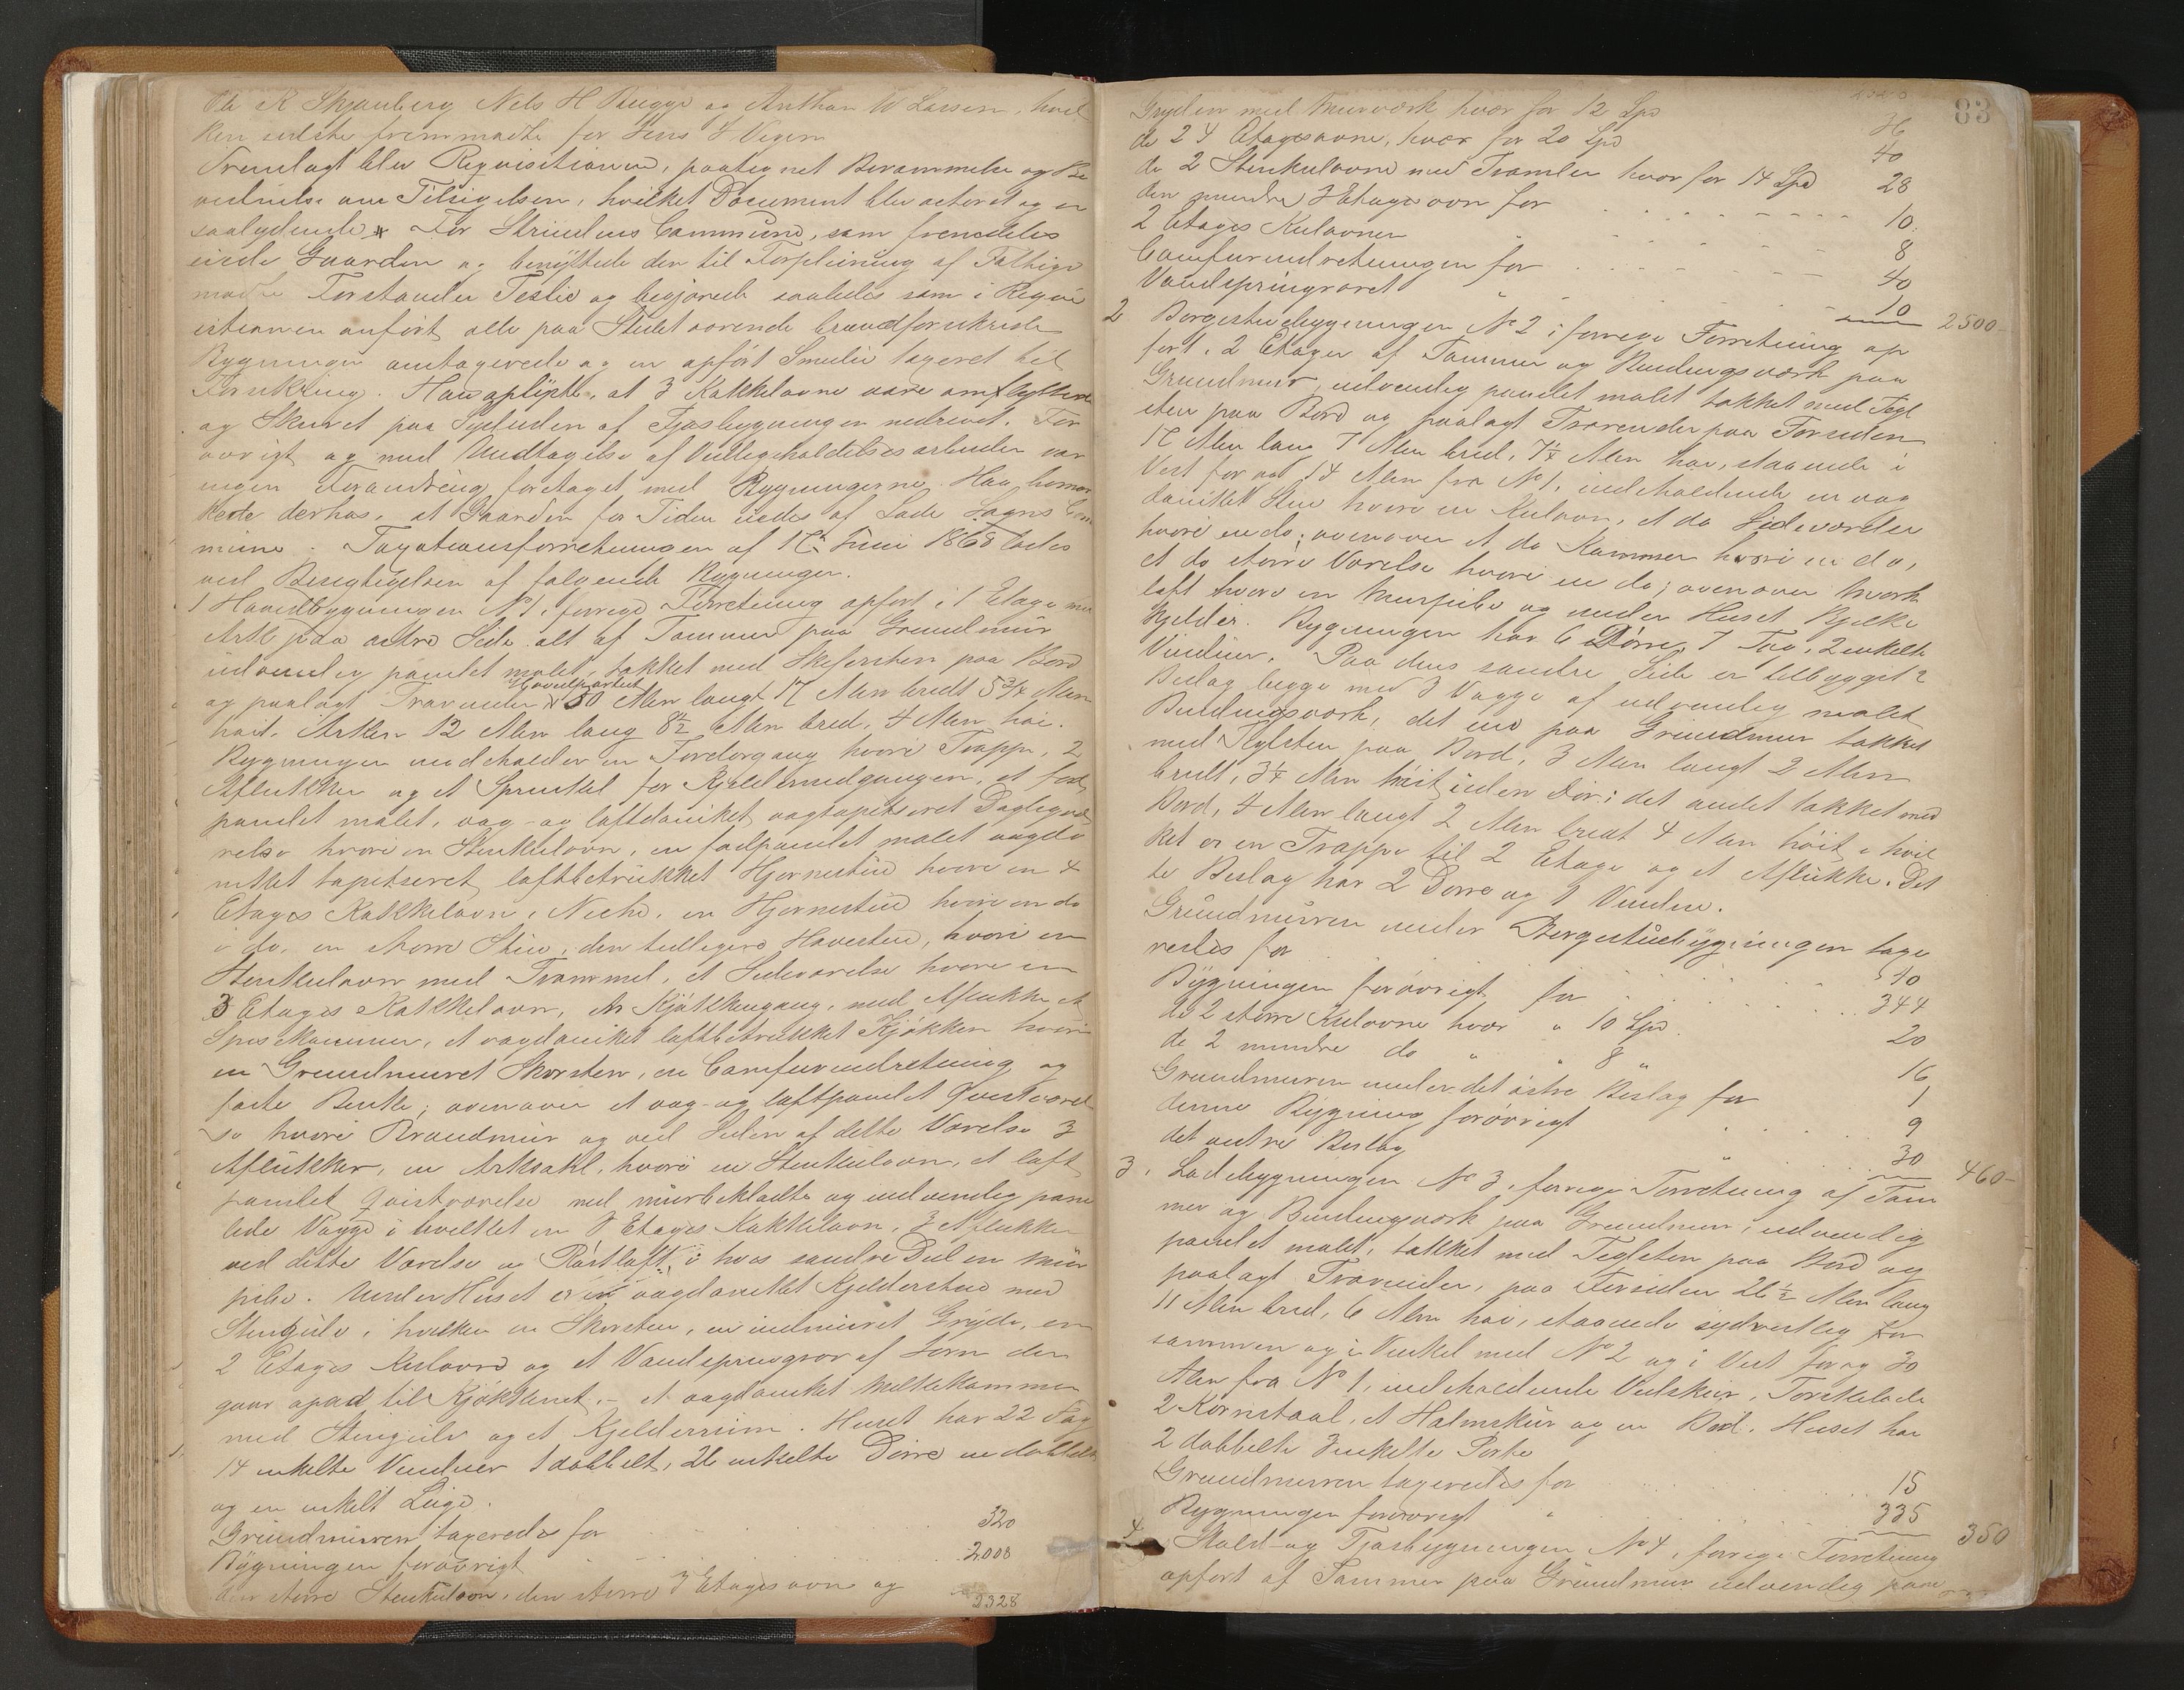 Ole K Skjanberg, Nels H Bugge og Anthon W Larsen, hvil
ken sidste fremmødte for Jens J Vegem
Fremlagt blev Requisitionen, paategnet Berammelse og Be
vidnelse om Tilsigelsen, hvilket Document blev acteret og er
saalydende * For Strindens Commune, som fremdeles
eiede Gaarden og benyttede den til Forpleining af Fattige
mødte Forstander Teslie og begjærede saaledes som i Requi
sitionen anført alle paa Stedet værende brandforsikrede
Bygninger omtaxerede og en opført Smedie taxeret til
Forsikring. Han oplyste, at 3 Kakkelovne vare omflyttede
og Skuret paa Sydsiden af Fjøsbygningen nedrevet. For
øvrigt og med Undtagelse af Vedligeholdelsesarbeider var
ingen Forandring foretaget med Bygningerne. Han bemær
kede derhos, at Gaarden for Tiden eiedes af Lade Sogns Com
mune. Taxationsforretningen af 17 Juni 1868 lagdes
ved Besigtigelsen af følgende Bygninger.
1 Hovedbygningen No 1, forrige Forretning opført i 1 Etage med
Ark paa østre Side alt af Tømmer paa Grundmur
udvendig panelet malet, takket med Skifersten paa Bord
og paalagt Trærender Hovedpartiet 50 Alen langt 17 Alen bredt 5 3/4 Alen
høit. Arken 12 Alen lang 8 1/2 Alen bred, 4 Alen høi.
Bygningen indeholder en Fordørgang hvori Trappe, 2
Aflukker og et Sprinkel for Kjeldernedgangen, et fuld
panelet malet, væg- og loftdaniket vægtapetseret Dagligvæ
relse hvori en Stenkulovn, en fuldpanelet malet vægda
niket tapetseret loftbetrukket Hjørnestue hvori en 4
Etages Kakkelovn i Niche, en Hjørnestue hvori en do
i do, en større Stue, den tidligere Havestue, hvori en
Stenkulovn med Trommel, et Sideværelse hvori en
3 Etages Kakkelovn, en Kjøkkengang, med Aflukke et
Spiskammer, et vægdaniket loftbetrukket Kjøkken hvori
en Grundmuret Skorsten, en Comfurindretning og
faste Benke; ovenover et væg- og loftpanelet Qvistværel
se hvori Brandmur og ved Siden af dette Værelse 3
Aflukker, en Arksahl, hvori en Stenkulovn, et loft
panelet Qvistværelse med murbeklædte og indvendig pane
lede Vægge i hvilket en 3 Etages Kakkelovn, 3 Aflukker
ved dette Værelse og Røstloft, i hvis søndre Del en mur
pibe. Under Huset er en vægdaniket Kjelderstue med
Stengulv, i hvilken en Skorsten, en indmuret Gryde, en
2 Etages Kulovn og et Vandspringrør af Jern der
gaar opad til Kjøkkenet, – et vægdaniket Melkekammer
med Stengulv og et Kjelderrum. Huset har 22 Fag
14 enkelte Vinduer 1 dobbelt, 26 enkelte Dørre en dobbelt
og en enkelt Luge.
Grundmuren taxeredes for 320
Bygningen forøvrigt 2,008
den større Stenkulovn, den større 3 Etages ovn og
2328
83
Gryden med Murværk hver for 12 Spd 36
de 2 4 Etagesovne, hver for 20 Spd 40
de 2 Stenkulovne med Tromler hver for 14 Spd 28
den mindre 3 Etages ovn for 10
2 Etages Kulovnen 8
Comfurindretningen for 40
Vandspringrøret 10 2500-
2 Borgestuebygningen No 2 i forrige Forretning op
ført i 2 Etager af Tømmer og Bindingsværk paa
Grundmur, udvendig panelet malet takket med Tegl
sten paa Bord og paalagt Trærender paa Forsiden
17 Alen lang 7 Alen bred, 7 1/4 Alen høi, staaende i
Vest for og 14 Alen fra No 1, indeholdende en væg
daniket Stue hvori en Kulovn, et do Sideværelse
hvori en do; ovenover et do Kammer hvori en do,
et do større Værelse hvori en do; ovenover Mørk
loft hvori en Murpibe og under Huset Bjelke
kjelder. Bygningen har 6 Dørre, 7 Fag, 2 enkelte
Vinduer. Paa dens søndre Side er tilbygget 2
Beslag begge med 3 Vægge af udvendig malet
Bindingsværk, det ene paa Grundmur takket
med Teglsten paa Bord, 3 Alen langt 2 Alen
bredt, 3 1/4 Alen høit uden Dør; det andet takket med
Bord, 4 Alen langt 2 Alen bredt 4 Alen høit, i hvil
ket er en Trappe til 2 Etage og et Aflukke. Det
te Beslag har 2 Dørre og 1 Vindue.
Grundmuren under Borgestuebygningen taxe
redes for 40
Bygningen forøvrigt for 344
de 2 større Kulovne hver " 10 Spd. 20
de 2 mindre do " " 8 " 16
Grundmuren under det østre Beslag for 1
denne Bygning forøvrigt 9
det vestre Beslag " 30 460-
3. Ladebygningen No 3, forrige Forretning af Tøm
mer og Bindingsværk paa Grundmur, udvendig
panelet malet, takket med Teglsten paa Bord og
paalagt Trærender, paa Forsiden 26 1/2 Alen lang
11 Alen bred, 6 Alen høi, staaende sydvestlig for
sammen og i Vinkel med No 2 og i Vest for og 30
Alen fra No 1, indeholdende Vedskur, Tørskelade
2 Kornstaal, et Halmskur og en Bod. Huset har
2 dobbelte 3 enkelte Porte
Grundmuren taxeredes for 15
Bygningen forøvrigt " 335 350
4 Stald- og Fjøsbygningen No 4, forrige Forretning
opført af Tømmer paa Grundmur udvendig pane